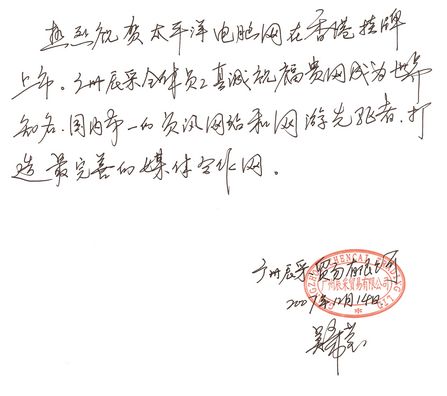 热烈祝贺太平洋电脑网在香港挂牌
上市。广州辰采全体员工真诚祝福贵网成为世界
知名、国内第一的资讯网站和网游先驱者,打
造最完善的媒体合作网。
广州辰采贸易有限公司
广州辰采贸易有限公司
2007年12月14日